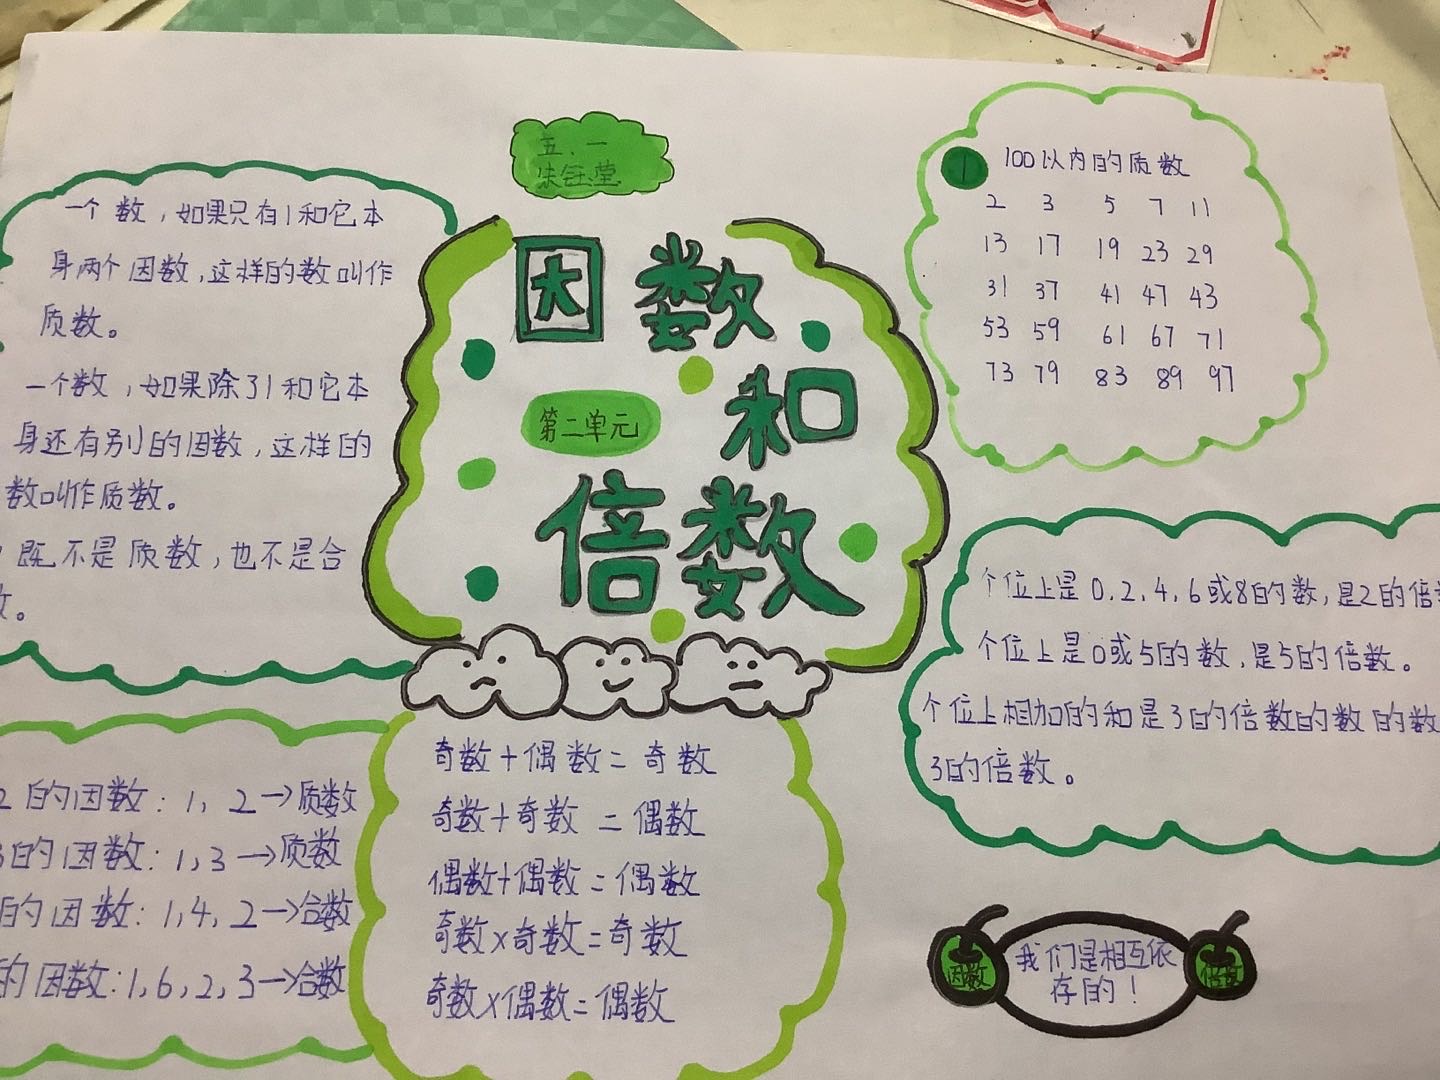 五、一
朱钰莹
因数
和
倍数
第二单元
一个数，如果只有1和它本
身两个因数，这样的数叫作
质数。
一个数，如果除了1和它本
身还有别的因数，这样的
数叫作质数。
既不是质数，也不是合
。
100以内的质数
2 3 5 7 11
13 17 19 23 29
31 37 41 47 43
53 59 61 67 71
73 79 83 89 97
个位上是0，2，4，6或8的数，是2的倍
个位上是0或5的数，是5的倍数。
个位上相加的和是3的倍数的数的数
3的倍数。
2的因数：1，2→质数
3的因数：1，3→质数
的因数：1，4，2→合数
的因数：1，6，2，3→合数
奇数+偶数=奇数
奇数+奇数=偶数
偶数+偶数=偶数
奇数×奇数=奇数
奇数×偶数=偶数
因数
我们是相互依
存的！
倍数